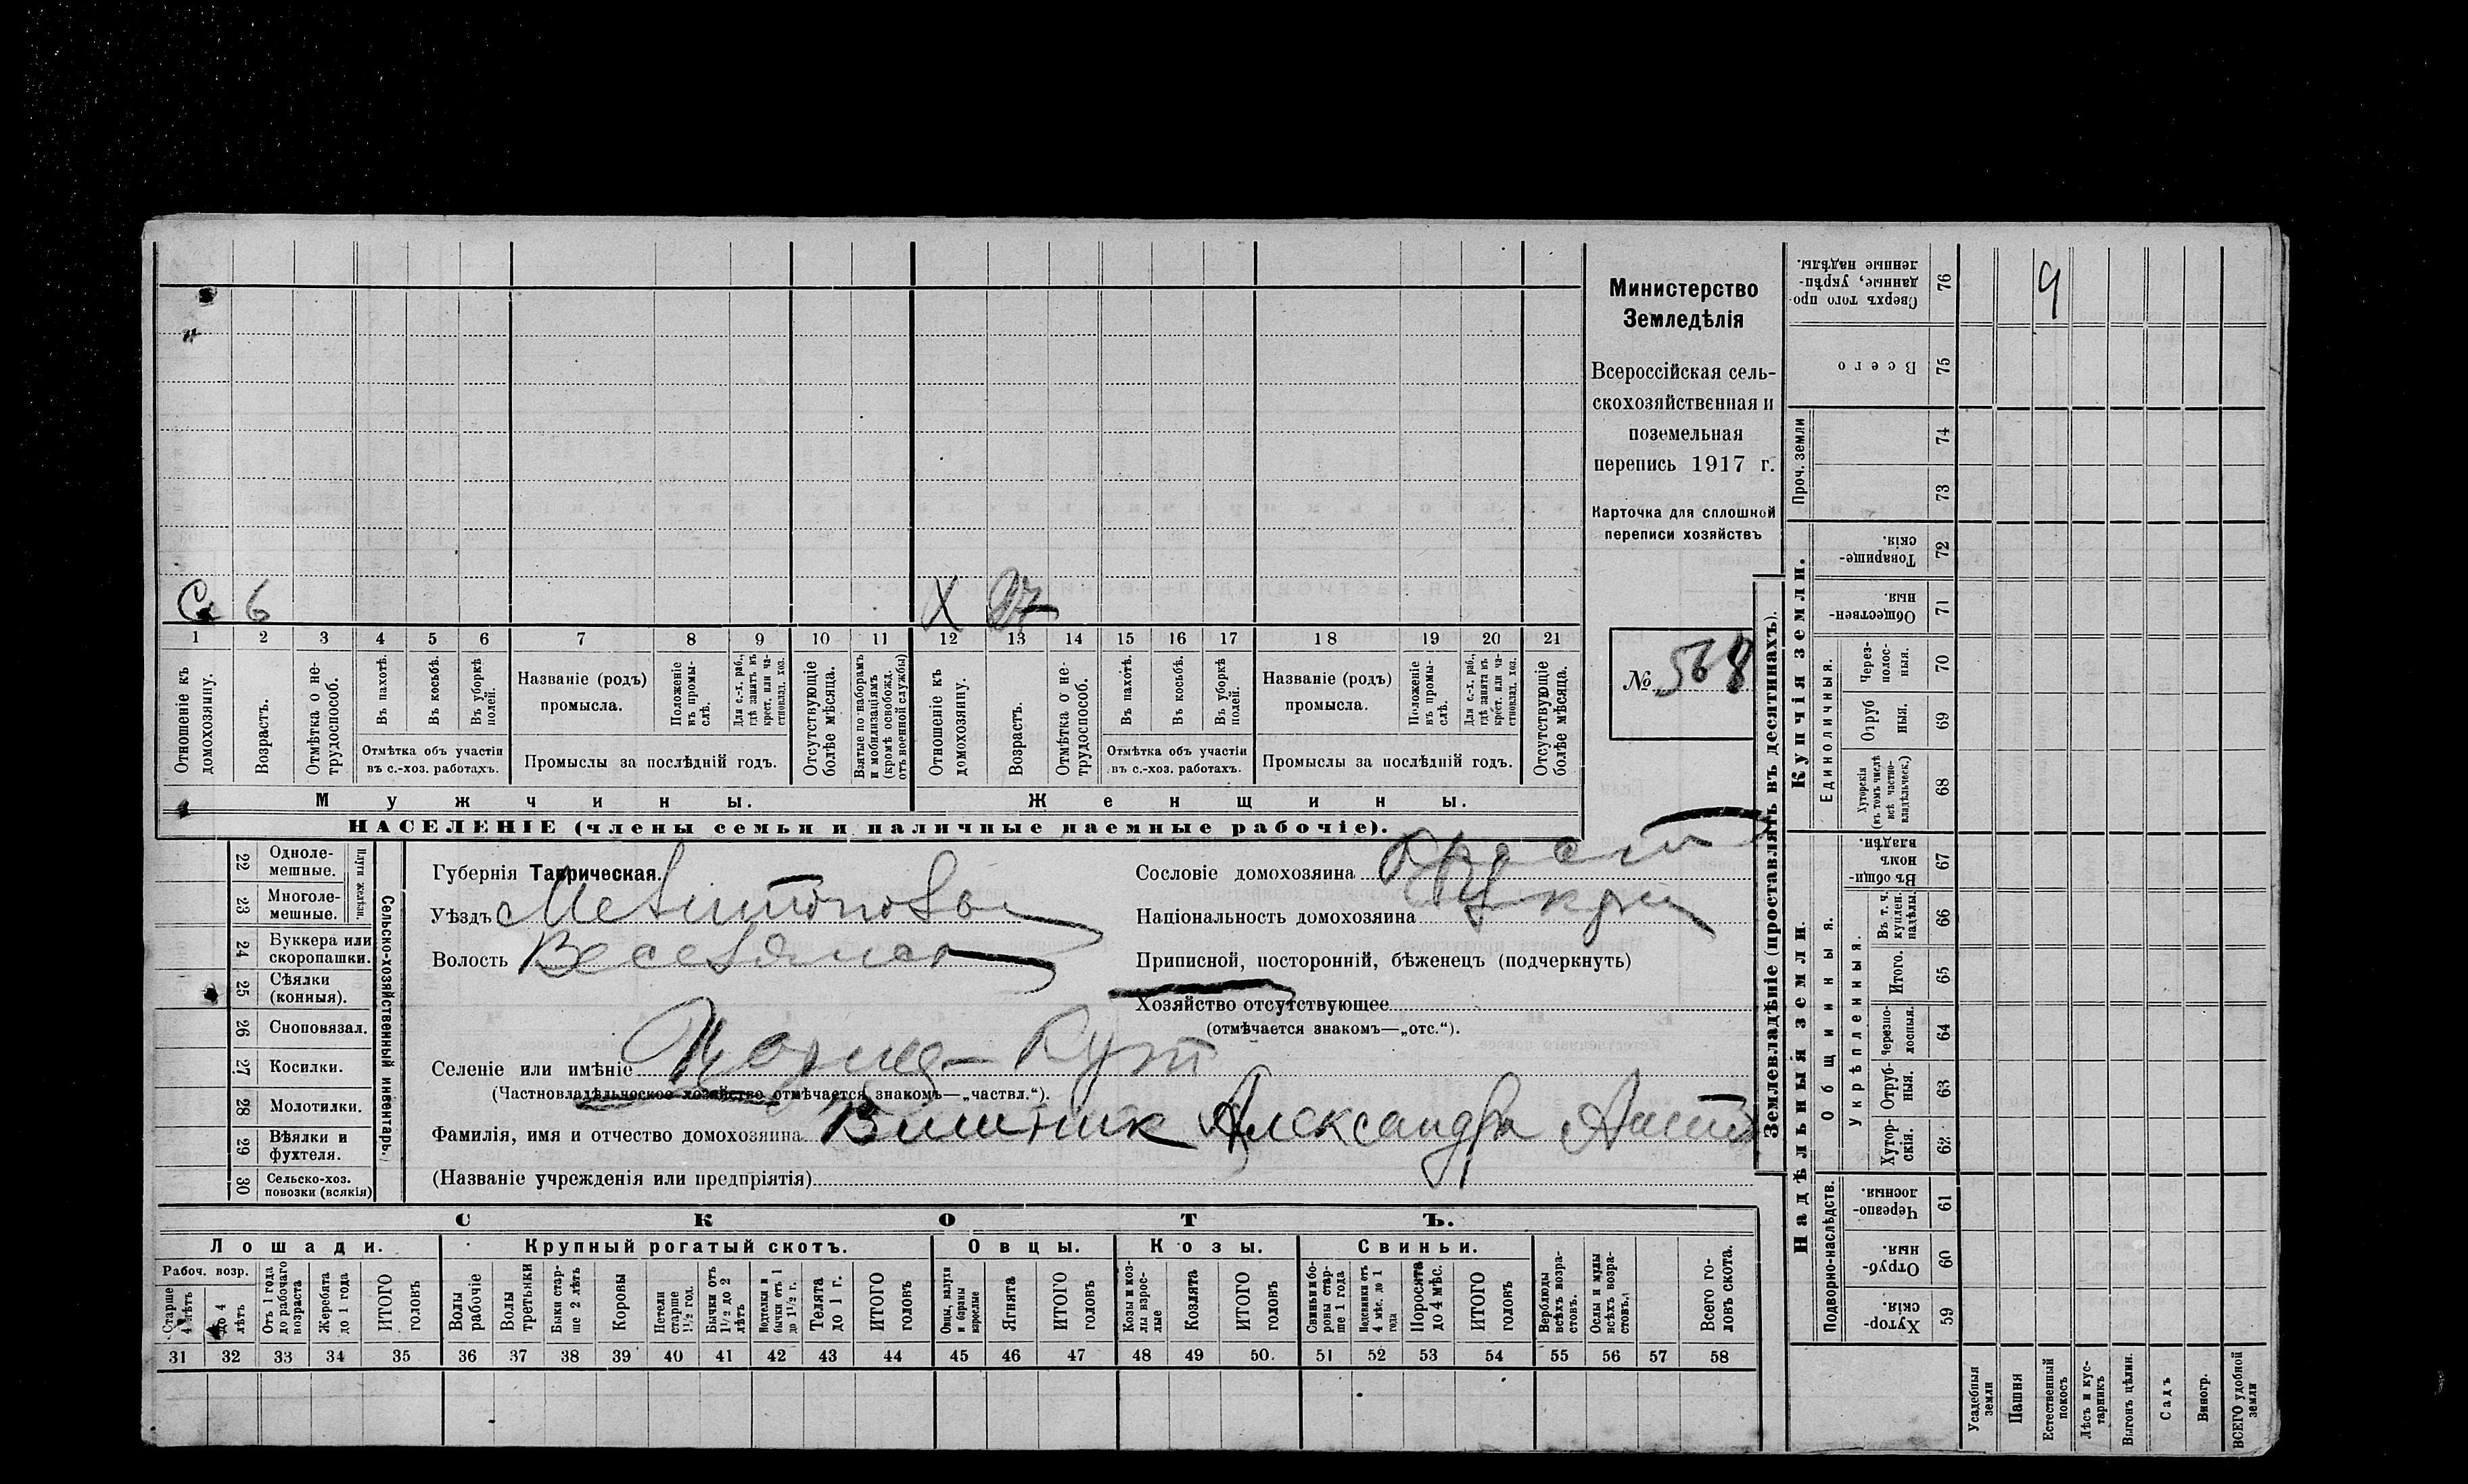 Министерство
Земледѣлія
Всероссійская сель-
скохозяйственная и
поземельная
перепись 1917 г.
Карточка для сплошной
переписи хозяйствъ
№ 568
6
X 27
1 2 3 4 5 6 7 8 9 10 11 12 13 14 15 16 17 18 19 20 21
Отношеніе къ домохозяину.
Возрастъ.
Отмѣтка о не-трудоспособ.
Въ пахотѣ.
Въ косьбѣ.
Въ уборкѣ полей.
Отмѣтка объ участіи
въ с.-хоз. работахъ.
Названіе (родъ)
промысла.
Положеніе въ промы-слѣ.
Для с.-х. раб., гдѣ занятъ въ крест. или ча-стновлад. хоз.
Промыслы за послѣдній годъ.
Отсутствующіе болѣе мѣсяца.
Взятые по наборамъ и мобилизаціямъ (кромѣ освобожд. отъ военной службы)
Отношеніе къ домохозяину.
Возрастъ.
Отмѣтка о не-трудоспособ.
Въ пахотѣ.
Въ косьбѣ.
Въ уборкѣ полей.
Отмѣтка объ участіи
въ с.-хоз. работахъ.
Названіе (родъ)
промысла.
Положеніе въ промы-слѣ.
Для с.-х. раб., гдѣ занята въ крест. или ча-стновлад. хоз.
Промыслы за послѣдній годъ.
Отсутствующіе болѣе мѣсяца.
Мужчины.
Женщины.
НАСЕЛЕНІЕ (члены семьи и наличные наемные рабочіе).
Сельско-хозяйственный инвентарь.
Плуги желѣзн.
22 Одноле-мешные.
23 Многоле-мешные.
24 Буккера или скоропашки.
25 Сѣялки (конныя).
26 Сноповязал.
27 Косилки.
28 Молотилки.
29 Вѣялки и фухтеля.
30 Сельско-хоз. повозки (всякія)
Губернія Таврическая.
Уѣздъ Мелитополь
Волость Веселянск
Сословіе домохозяина Крест
Національность домохозяина Укр
Приписной, посторонній, бѣженецъ (подчеркнуть)
Хозяйство отсутствующее
(отмѣчается знакомъ—„отс.“).
Селеніе или имѣніе Кут
(Частновладѣльческое хозяйство отмѣчается знакомъ—„частвл.“).
Фамилія, имя и отчество домохозяина Вишник Александра
(Названіе учрежденія или предпріятія)
СКОТЪ.
Лошади.
Крупный рогатый скотъ.
Овцы.
Козы.
Свиньи.
Рабоч. возр.
Старше 4 лѣтъ
До 4 лѣтъ
Отъ 1 года до рабочаго возраста
Жеребята до 1 года
ИТОГО головъ
Волы рабочіе
Волы третьяки
Быки стар-ше 2 лѣтъ
Коровы
Нетели старше 1½ год.
Бычки отъ 1½ до 2 лѣтъ
Подтелки и бычки отъ 1 до 1½ г.
Телята до 1 г.
ИТОГО головъ
Овцы, валухи и бараны взрослые
Ягнята
ИТОГО головъ
Козы и коз-лы взрос-лые
Козлята
ИТОГО головъ
Свиньи и бо-ровы стар-ше 1 года
Подсвинки отъ 4 мѣс. до 1 года
Поросята до 4 мѣс.
ИТОГО головъ
Верблюды всѣхъ возра-стовъ.
Ослы и мулы всѣхъ возра-стовъ.
Всего го-ловъ скота.
31 32 33 34 35 36 37 38 39 40 41 42 43 44 45 46 47 48 49 50. 51 52 53 54 55 56 57 58
Землевладѣніе (проставлять въ десятинахъ).
Купчія земли.
Надѣльныя земли.
Сверхъ того про-данные, укрѣп-ленные надѣлы. 76
Всего 75
Проч. земли 74
73
Товарище-скія. 72
Обществен-ныя. 71
Единоличныя.
Через-полос-ныя. 70
Отруб ныя. 69
Хуторскія (въ томъ числѣ всѣ частно-владѣльческ.) 68
Общинныя.
Въ общи-номъ владѣн. 67
Укрѣпленныя.
Въ т. ч. куплен. надѣлы. 66
Итого. 65
Черезпо-лосныя. 64
Отруб-ныя. 63
Хутор-скія. 62
Подворно-наслѣдств.
Черезпо-лосныя. 61
Отруб-ныя. 60
Хутор-скія. 59
Усадебныя земли
Пашня
Естественный покосъ
Лѣсъ и кус-тарникъ
Выгонъ цѣлин.
Садъ
Виногр.
ВСЕГО удобной земли